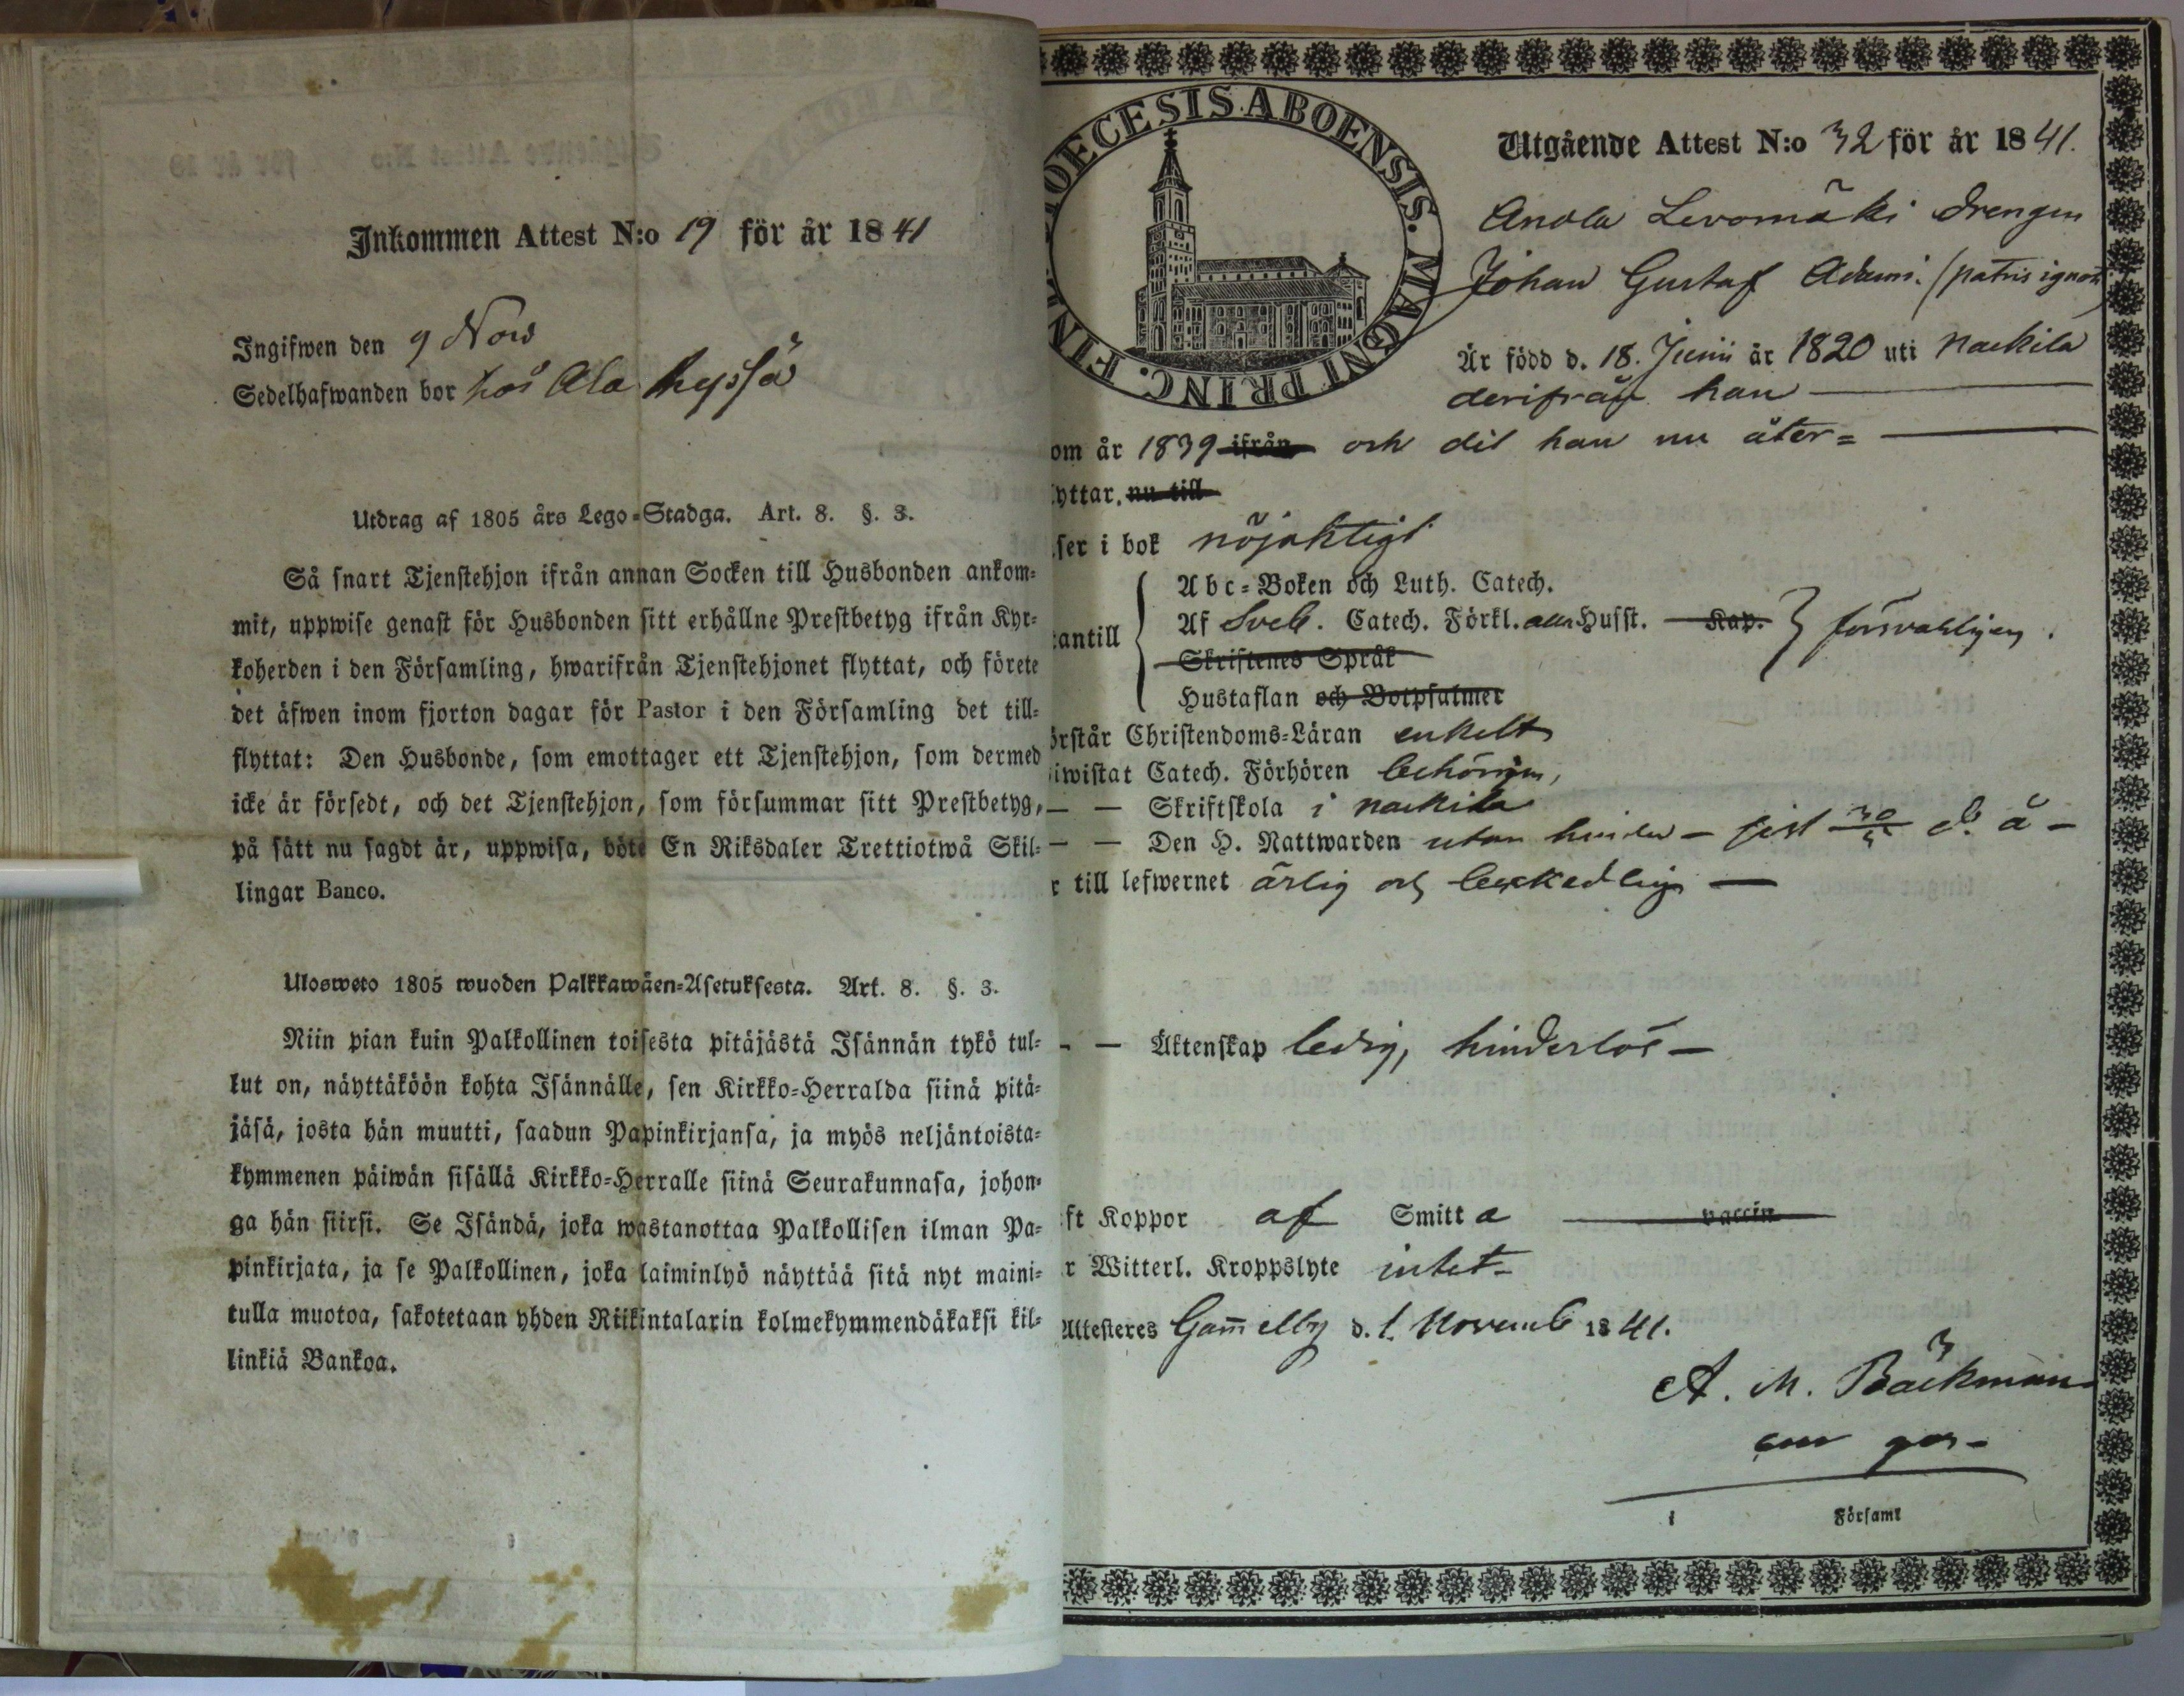 Inkommen Attest N:o 19 för år 1841
Ingifwen den 9 Nov
Sedelhafwanden bor hos Ala
Utdrag af 1805 års Lego-Stadga. Art. 8. §. 3.
Så snart Tjenstehjon ifrån annan Socken till Husbonden ankom-
mit, uppwise genast för Husbonden sitt erhållne Prestbetyg ifrån Kyr-
koherden i den Församling, hwarifrån Tjenstehjonet flyttat, och förete
det äfwen inom fjorton dagar för Pastor i den Församling det till-
flyttat: Den Husbonde, som emottager ett Tjenstehjon, som dermed
icke är försedt, och det Tjenstehjon, som försummar sitt Prestbetyg,
på sätt nu sagdt är, uppwisa, böte En Riksdaler Trettiotwå Skil-
lingar Banco.
Ulosweto 1805 wuoden Palkkawäen-Asetuksesta. Art. 8. §. 3.
Niin pian kuin Palkollinen toisesta pitäjästä Isännän tykö tul-
lut on, näyttäköön kohta Isännälle, sen Kirkko-Herralda siinä pitä-
jäsä, josta hän muutti, saadun Papinkirjansa, ja myös neljäntoista-
kymmenen päiwän sisällä Kirkko-Herralle siinä Seurakunnasa, johon-
ga hän siirsi. Se Isändä, joka wastanottaa Palkollisen ilman Pa-
pinkirjata, ja se Palkollinen, joka laiminlyö näyttää sitä nyt maini-
tulla muotoa, sakotetaan yhden Riikintalarin kolmekymmendäkaksi kil-
linkiä Bankoa.
DIOECESIS ABOENSIS. MAGNI PRINC. FIN
Utgående Attest N:o 32 för år 1841.
Anola Levomäki drengen
Johan Gustaf Adami. (patris ignoti)
Är född d. 18. Junii år 1820 uti Nackila
derifrån han
om år 1839 ifrån och dit han nu åter=
yttar, nu till
ser i bok nöjaktigt
antill
Abc-Boken och Luth. Catech.
Af Sveb. Catech. Förkl. Husst. Kap.
Skriftenes Språk
Hustaflan och Botpsalmer
försvarligen.
örstår Christendoms-Läran enkelt
iwistat Catech. Förhören behörigen,
— — Skriftskola i Nackila
— — Den H. Nattwarden utan hinder – sist 30/5 d. å –
r till lefwernet ärlig och beskedlig —
- — Äktenskap ledig, hinderlös —
ft Koppor af Smitta vaccin
r Witterl. Kroppslyte intet –
Attesteres Gammelby d. 1. Novemb 1841.
A. M. Bäckman
i Församl